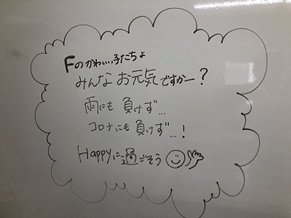 Fのかわいい子たちよ
みんなお元気ですかー?
雨にも負けず…
コロナにも負けず…!
Happyに過ごそう